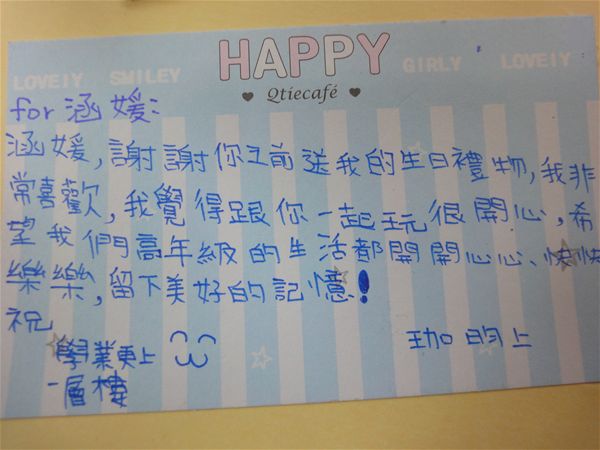 HAPPY
LOVELY SMILEY GIRLY LOVELY
Qtiecafé
for涵媛:
涵媛,謝謝你之前送我的生日禮物,我非
常喜歡,我覺得跟你一起玩很開心,希
望我們高年級的生活都開開心心、快快
樂樂,留下美好的記憶!
祝
學業更上
一層樓
珈昀上